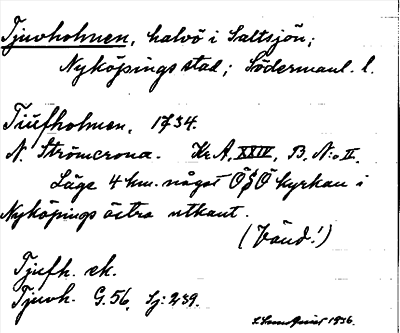 Tjuvholmen, halvö i Saltsjön;
Nyköpings stad; Södermanl. l.
Tiufholmen, 1734.
N. Strömcrona. Kr. A. XXIV, B. N:o II.
Läge 4 km. något Ö S Ö kyrkan i
Nyköpings östra utkant.
(Vänd!)
Tjufh. ek.
Tjuvh. G. 56. Sj: 239.
1936.